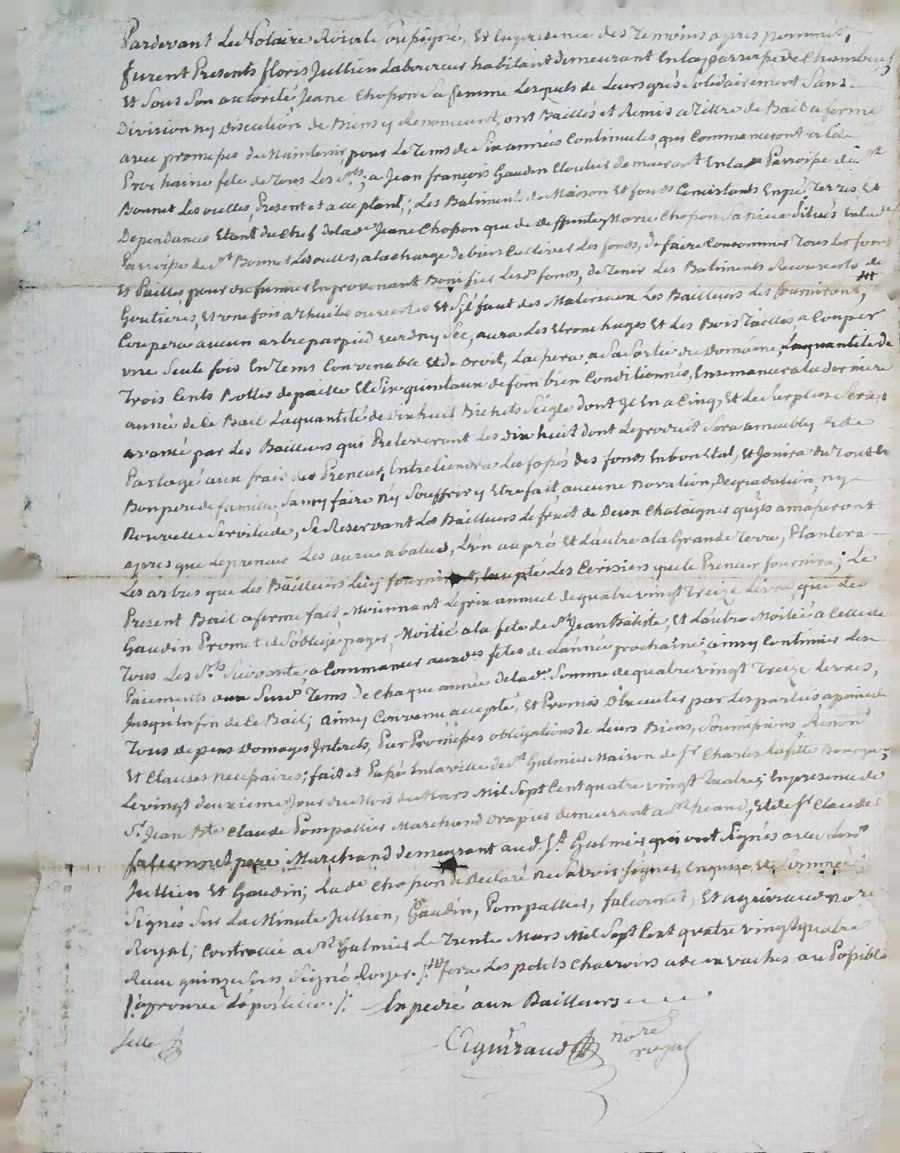 Pardevant Le Notaire Roial Soussigné, Et En presence des Temoins apres Nommés,
furent Presents floris Jullien Laboureur habitant demeurant En la parroisse de Chambeuf
Et Sous Son autorité Jeane Chopon Sa femme Lesquels de Leurs grés Solidairement Sans
Division ny Discution de Biens y Renonceant, ont Baillés et Remis a Tittre de Bail a ferme
avec promesses de Maintenir pour Le Tems de Six années Continuelles, qui Commenceront a la
Prochaine fête de Tous Les Sts; a Jean françois Gaudin Cloutier demeurant En la Parroisse de St
Bonnet Les oulles, Present et acceptant; Les Batiments de Maison Et fonds Consistants En pré, Terres Et
Dependances Etant du Chef de lade Jeane Chopon que de deffunte Marie Chopon Sa niece Situés En lade
Parroisse de St Bonnet Les oulles, a la charge de bien Cultiver Les fonds, de faire Consommer Tous Les foins
Et Pailles pour du fumier En provenant Bonifier Lesds fonds, de Tenir Les Batiments Recouverts de
Goutieres, Et une fois a thuiles ouvertes Et S'il faut des Materiaux Les Bailleurs Les fourniront,
Coupera aucun arbre par pied verd ny Sec, aura Les Etronchages Et Les Bois Taillés a Couper
une Seule fois En Tems Convenable Et de Droit, Laissera a Sa Sortie du Domaine, La quantité de
Trois Cents Bottes de paille Et Six quintaux de foin bien Conditionnés, Ensemencera la derniere
année de Ce Bail La quantité de dix huit Bichets Seigle dont Il En a Cinq, Et Le Surplus Sera
avancé par Les Bailleurs qui Preleveront Les dix huit dont Le produit Sera
Partagé aux frais du Preneur, Entretiendra Les fossés des fonds En bon Etat, Et Jouira du Tout En
Bon pere de famille, Sans y faire N'y Souffrir y Etre fait aucune Novation, Degradation, ny
Nouvelle Servitude, Se Reservant Les Bailleurs Le fruit de Deux Chataigniers qu'ils amasseront
apres que Le preneur Les aura abatus, L'un au pré Et L'autre a la Grande Terre, Plantera
Les arbres que Les Bailleurs Luy fourniront, Excepté Les Cerisiers que Le Preneur fournira; Le
Present Bail a ferme fait Moiennant Le prix annuel de quatre vingt Treize Livres, que Led
Gaudin Promet Et S'oblige payer, Moitié a la fete de St Jean Batiste, Et L'autre Moitié a Celle de
Tous Les Sts Suivante, a Commancer auxdes fêtes de L'année prochaine, ainsy Continuer Les
Paiements aux Susds Tems de Chaque année de lade Somme de quatre vingt Treize Livres,
Jusqu'en fin de Ce Bail; ainsy Convenu, accepté, Et Promis D'Executer par Les parties a peine de
Tous depens Domages Interets, Par Promesses obligations de Leurs Biens, Soumissions Renonons
Et Clauses necessaires; fait et Passé En la ville de St Galmier Maison de Sr Charles Lafitte Bourgeois
Le vingt deuxieme Jour du Mois de Mars Mil Sept Cent quatre vingt quatre; En presence de
Sr Jean Bte Claude Pompallier Marchand Drapier demeurant a St heand, Et de Sr Claude
falconnet pere, Marchand demeurant aud. St Galmier, qui ont Signés avec Lesds
Jullien Et Gaudin; La de Chopon a Declaré Ne Savoir Signer, Enquise Et Sommée;
Signés Sur La Minute Jullien, Gaudin, Pompallier, falconnet, Et aguiraud nore
Royal; Controllé a St Galmier Le Trente Mars Mil Sept Cent quatre vingt quatre
Recu quinze Sols Signé Royer. fera Les petits Charroirs avec vaches au Possible
aprouvée La postille ./. Expedié aux Bailleurs
Aguiraud nore
royal